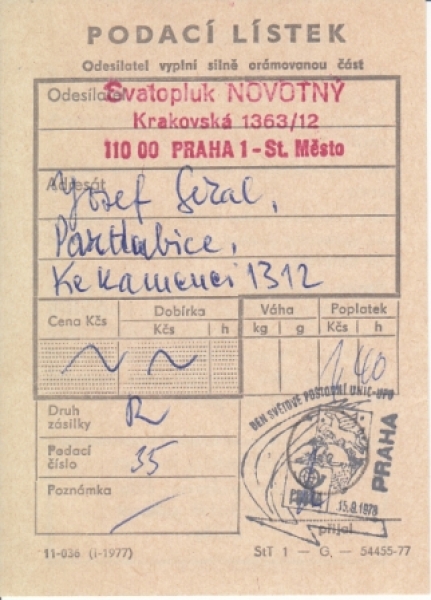 PODACÍ LÍSTEK
Odesílatel vyplní silně orámovanou část
Odesílatel
Svatopluk NOVOTNÝ
Krakovská 1363/12
110 00 PRAHA 1 - St. Město
Adresát
Josef
Pardubice,
Ke Kamenci 1312
Cena Kčs
Dobírka
Kčs h
Váha
kg g
Poplatek
Kčs h
1,40
Druh zásilky
R
Podací číslo
35
Poznámka
DEN SVĚTOVÉ POŠTOVNÍ UNIE-UPU
PRAHA
15.9.1978
přijal
11-036 (i-1977)
StT 1 — G, — 54455-77